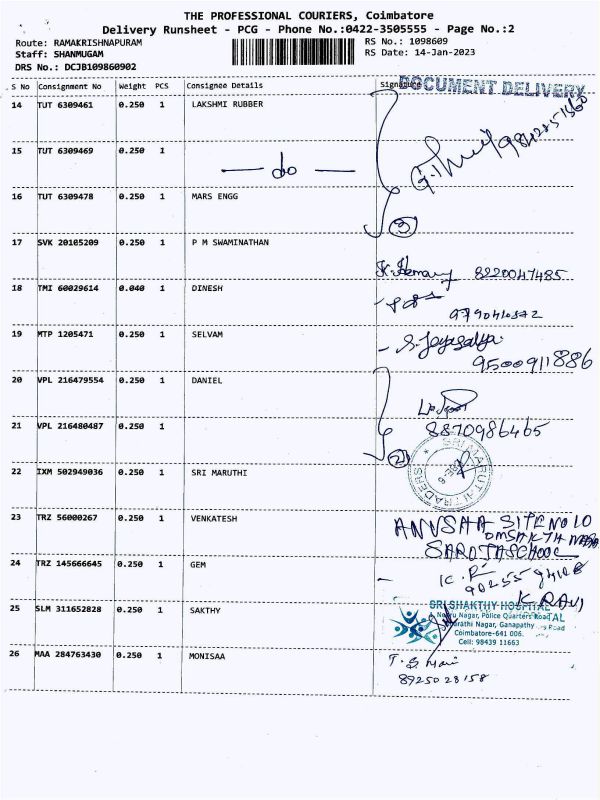 THE PROFESSIONAL COURIERS, Coimbatore
Delivery Runsheet - PCG - Phone No.:0422-3505555 - Page No.:2
Route: RAMAKRISHNAPURAM RS No.: 1098609
Staff: SHANMUGAM RS Date: 14-Jan-2023
DRS No.: DCJB109860902
S No Consignment No Weight PCS Consignee Details Signature DOCUMENT DELIVERY
14 TUT 6309461 0.250 1 LAKSHMI RUBBER
15 TUT 6309469 0.250 1
— do —
16 TUT 6309478 0.250 1 MARS ENGG
3
17 SVK 20105209 0.250 1 P M SWAMINATHAN
8220047485
18 TMI 60029614 0.040 1 DINESH
19 MTP 1205471 0.250 1 SELVAM
9500911886
20 VPL 216479554 0.250 1 DANIEL
21 VPL 216480487 0.250 1
8870986465
2
22 IXM 502949036 0.250 1 SRI MARUTHI
SRI MARUTHI TRADERS
23 TRZ 56000267 0.250 1 VENKATESH
ANUSHA SITE NO 10
24 TRZ 145666645 0.250 1 GEM
K RAVI
25 SLM 311652828 0.250 1 SAKTHY
SRI SHAKTHY HOSPITAL
Nehru Nagar, Police Quarters Road
Bharathi Nagar, Ganapathy
Coimbatore-641 006.
Cell: 98439 11663
26 MAA 284763430 0.250 1 MONISAA
8925028158